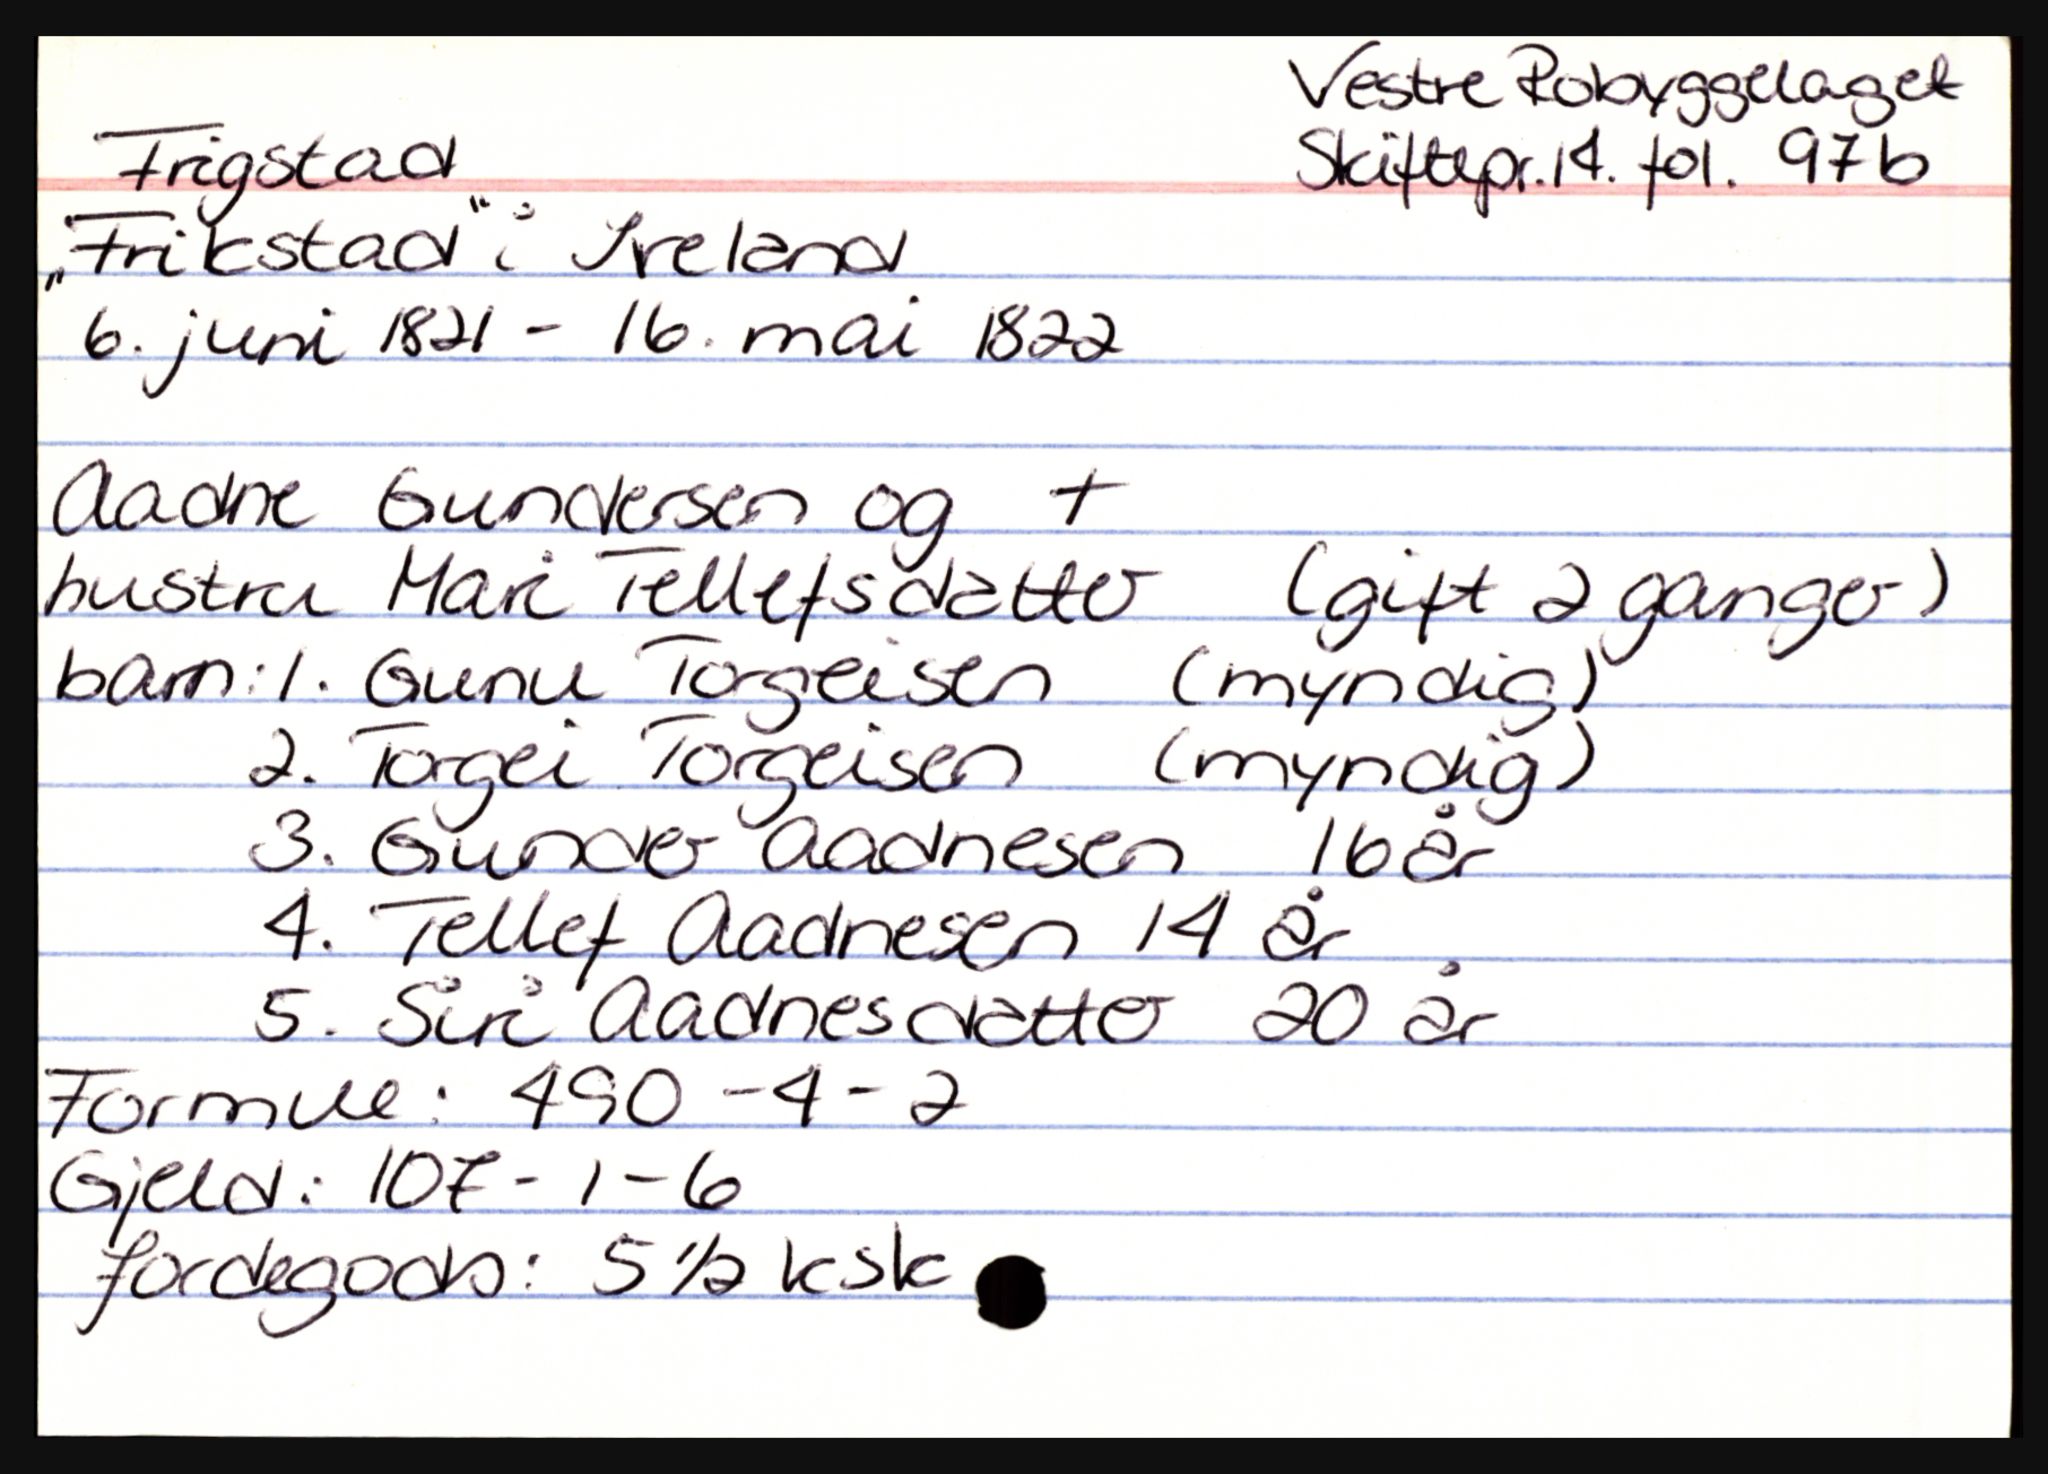 Vestre Robyggelaget
Skiftepr. 14. fol. 97b
Frigstad
„Frikstad" i Iveland
6. juni 1821 - 16. mai 1822
Aadne Gundersen og +
hustru Mari Tellefsdatter (gift 2 ganger)
barn: 1. Gunu Torgeisen (myndig)
2. Torgei Torgeisen (myndig)
3. Gunder Aadnesen 16 år
4. Tellef Aadnesen 14 år
5. Siri Aadnesdatter 20 år
Formue: 490 - 4 - 2
Gjeld: 107 - 1 - 6
Jordegods: 5 1/2 ksk